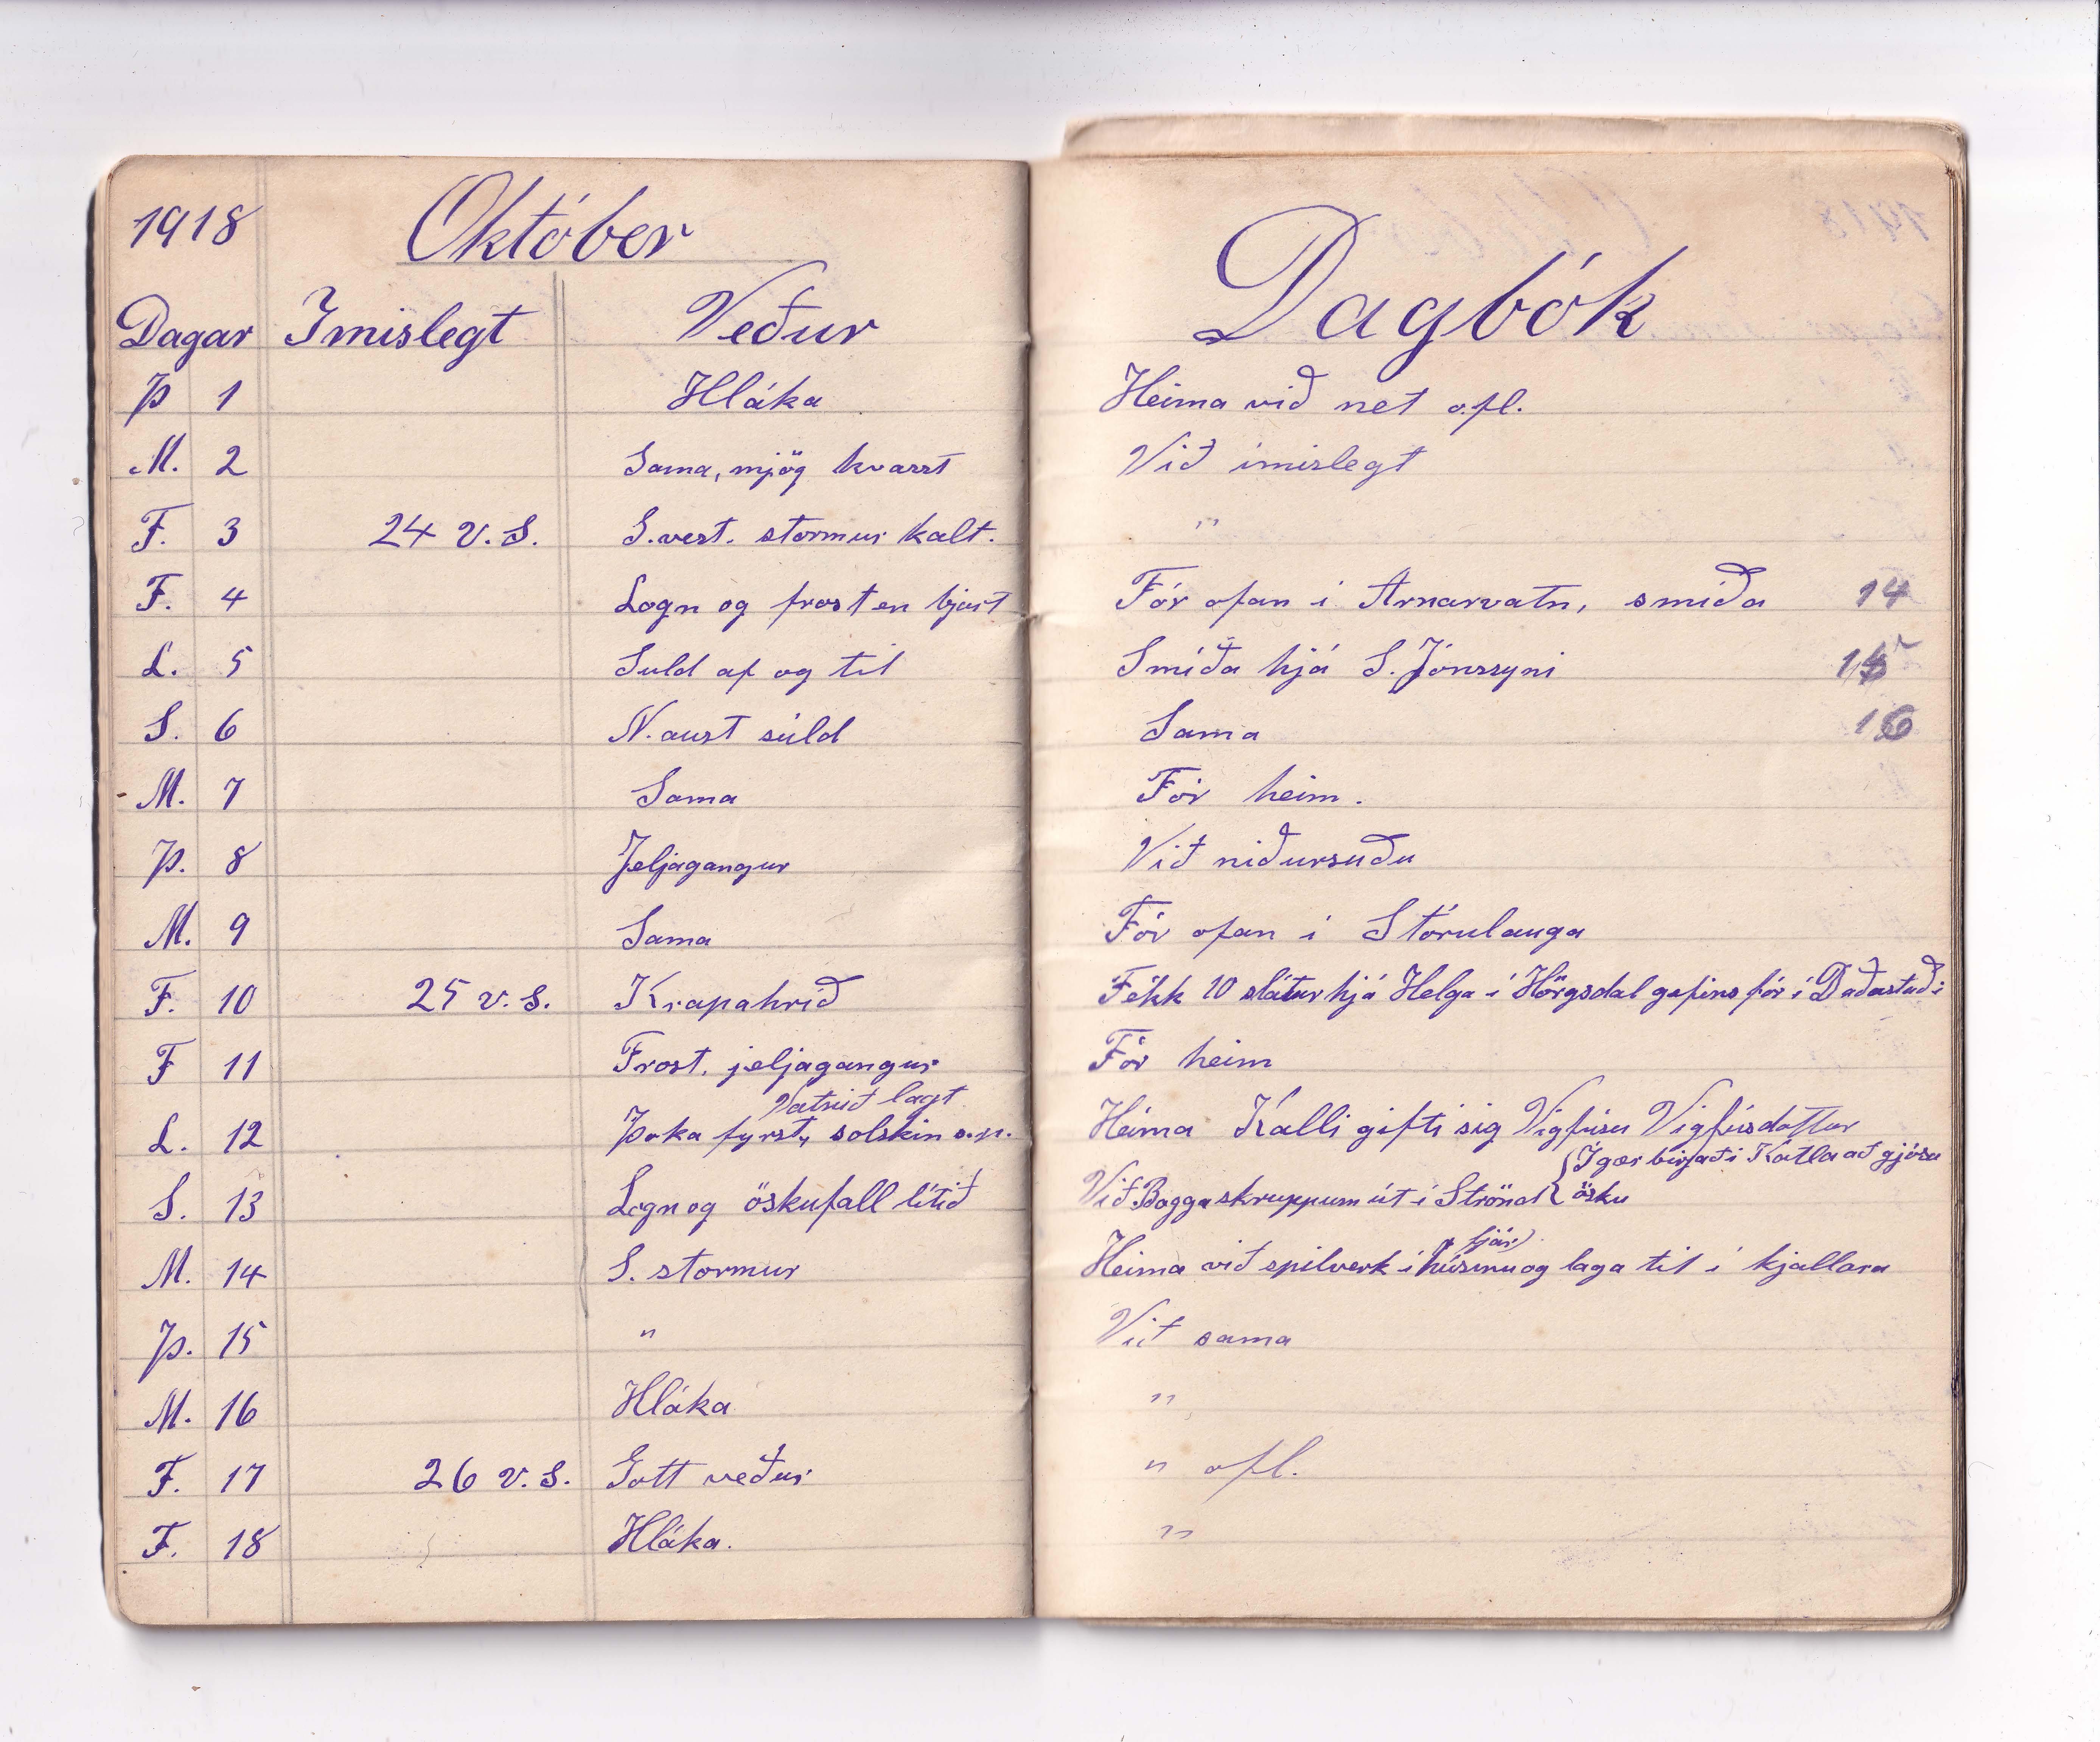 1918 Október
Dagar Imislegt Veður
Þ 1 Hláka
M. 2 Sama, mjög hvasst
F. 3 24 v.S. S.vest. stormur kalt.
F. 4 Logn og frost en bjart
L. 5 Suld af og til
S. 6 N.aust súld
M. 7 Sama
Þ. 8 Jeljagangur
M. 9 Sama
F. 10 25 v.S. Krapahríð
F 11 Frost. jeljagangur
Vatnið lagt
L. 12 Þoka fyrst, solskin s.p.
S. 13 Logn og öskufall lítið
M. 14 S. stormur
Þ. 15 "
M. 16 Hláka
F. 17 26 v.S. Gott veður
F. 18 Hláka.
Dagbók
Heima við net o.fl.
Við imislegt
"
Fór ofan í Arnarvatn, smiða 14
Smíða hjá S. Jónssyni 15
Sama 16
Fór heim.
Við niðursuðu
Fór ofan í Stórulauga
Fékk 10 slátur hjá Helga í Hörgsdal gefins fór í Daðastaði
Fór heim
Heima Kalli gifti sig Vigfúsu Vigfúsdottur
Í gær birjaði Katla að gjósa
Við Baggaskruppum út í Strönd ösku
fjár
Heima við spilverk í húsinu og laga til í kjallara
Við sama
"
" ofl.
"